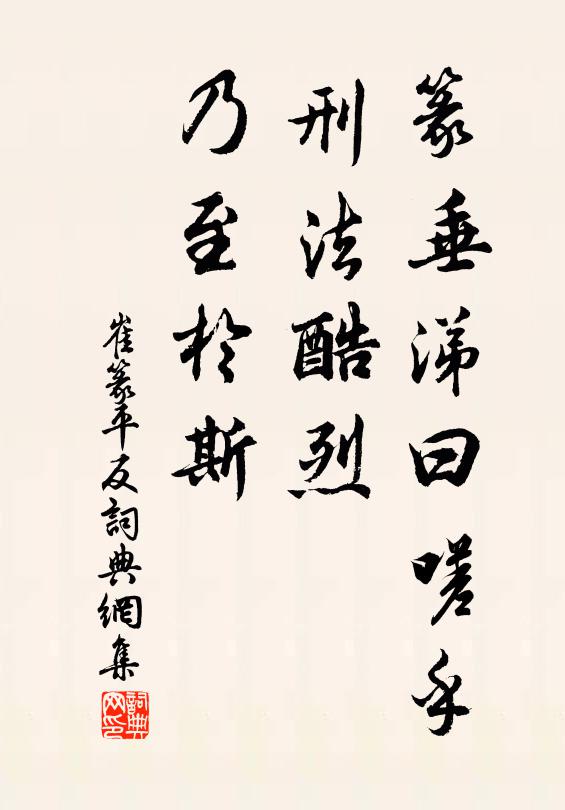 篆垂涕曰嗟乎
刑法酷烈
乃至於斯
崔篆平反詞典網集
詞典网印